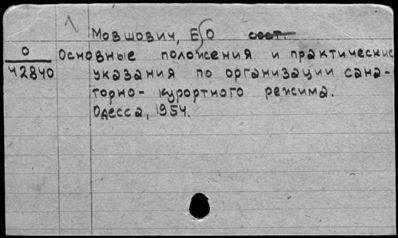 Мовшович, Е О сост.
О
42840
Основные положения и практические
указания по организации сана-
торно-курортного режима.
Одесса, 1954.